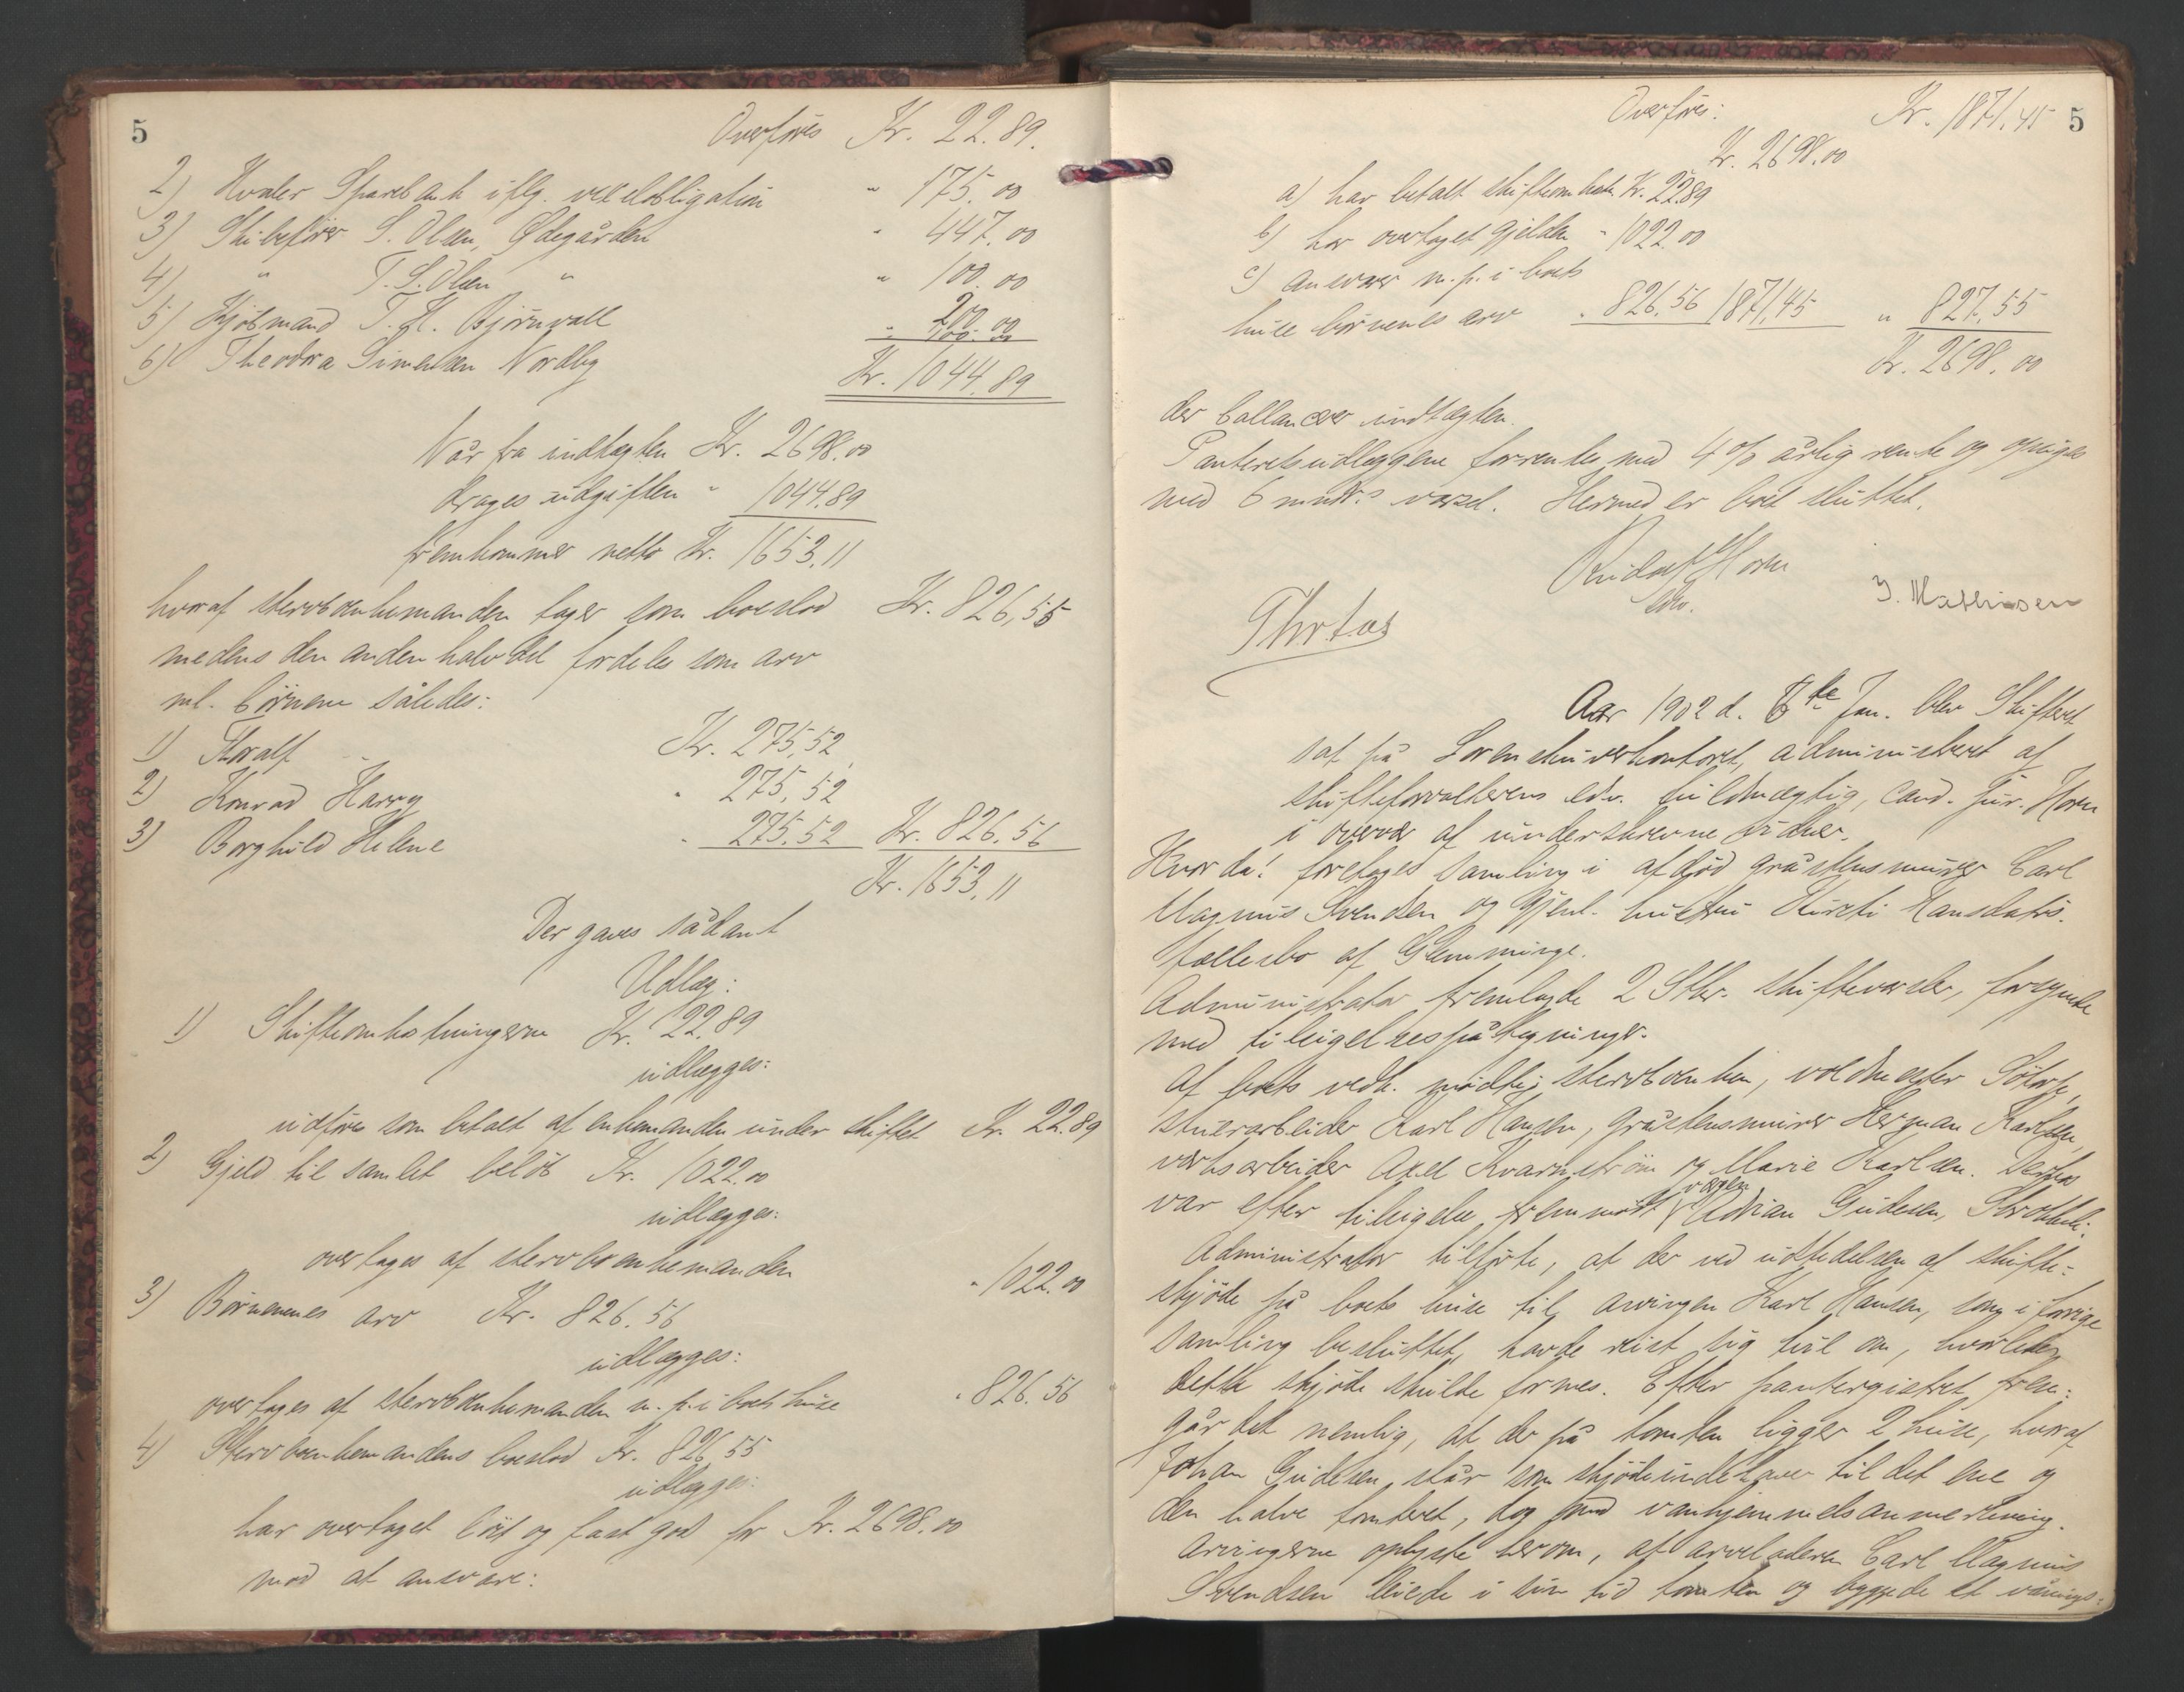 5
Overføres Kr. 22.89.
2) Hvaler Sparebank iflg. vexelobligation " 175.00
3) Skibsfører S. Olsen, Ødegården " 447.00
4) " T. S. Olsen " " 100.00
5) Kjøbmand T. H. Bjørnvall 200.00
6) Theodora Simensen Nordby " 100.00
Kr. 1044.89
Når fra indtægten Kr. 2698.00
drages udgiften " 1044.89
fremkommer netto Kr. 1653.11
hvoraf stervboenkemanden tager som boeslod Kr. 826,55
medens den anden halvdel fordeles som arv
ml. børnene således:
1) Thoralf Kr. 275,52
2) Konrad Harry " 275,52
3) Borghild Helene " 275.52 Kr. 826.56
Kr. 1653,11
Der gaves sådant
Udlæg:
1) Skifteomkostningerne Kr. 22.89
udlægges:
udføres som betalt af enkemanden under skiftet Kr. 22.89
2) Gjeld til samlet beløb Kr. 1022.00
udlægges:
overtages af stervboenkemanden " 1022.00
3) Børnenes arv Kr. 826.56
udlægges:
overtages af stervboenkemanden m. p. i boets huse " 826.56
4) Stervboenkemandens boeslod Kr. 826,55
udlægges:
har overtaget løst og fast gods for Kr. 2698.00
mod at ansvare:
Overføres: Kr. 1871.45 5
Kr. 2698.00
a) har betalt skifteomkostn. Kr. 22.89
b) har overtaget gjelden " 1022.00
c) ansvarer m. p. i boets
huse børnenes arv " 826.56 1871,45 " 827.55
Kr. 2698.00
der ballancerer indtægten.
Panteretsudlæggene forrentes med 4% årlig rente og opsiges
med 6 mndrs varsel. Hermed er boet sluttet.
Rudolf Horn
edv.
J. Mathisen
Aar 1902 d. 8de Jan. blev Skifteret
sat på Sorenskriverkontoret, administreret af
skifteforvalterens edv. fuldmægtig, cand. jur. Horn
i overvær af underskrevne vidner.
Hvor da: foretoges samling i afdød gråstensmurer Carl
Magnus Svendsen og gjenl. hustru Kirsti Hansdatters
fællesbo af Glemminge.
Administrator fremlagde 2 Stkr. skiftevarsler, forsynede
med tilsigelsespåtegninger.
Af boets vedk. mødte stervboenken, voldmester
stuerarbeider Karl Hansen, gråstensmurer Herman Karlsen,
verksarbeider Axel Kvarnstrøm og Marie Karlsen. Desfor
var efter tilsigelse fremmødt værgen Adrian Gudesen,
Administrator tilførte, at der ved udstedelsen af skifte-
skjøde på boets huse til arvingen Karl Hansen, som i forrige
samling besluttet, havde reist sig tvil om, hvorledes
dette skjøde skulde formes. Efter panteregistret frem-
går det nemlig, at der på tomten ligger 2 huse, hvoraf
Johan Gudesen står som skjødeindehaver til det ene og
den halve tomteret, dog med vanhjemmelsanmerkning.
Arvingerne oplyste herom, at arveladeren Carl Magnus
Svendsen leiede i sin tid tomten og byggede et vånings-